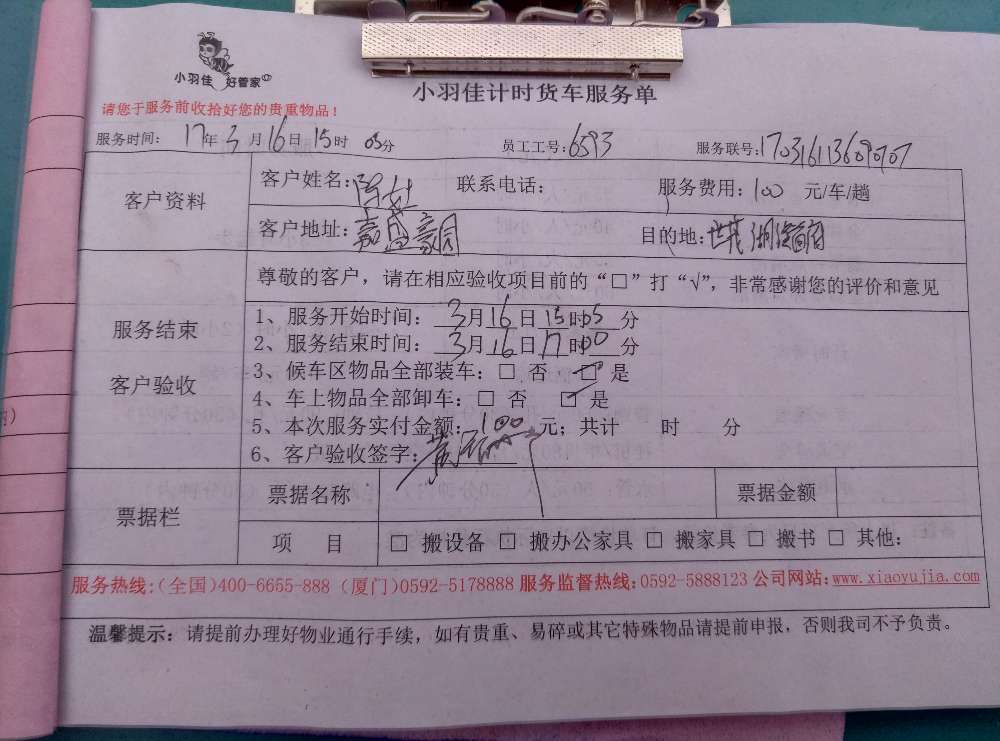 小羽佳 好管家
小羽佳计时货车服务单
请您于服务前收拾好您的贵重物品！
服务时间： 17年3月16日15时05分 员工工号：6593 服务联号：1703161136090707
客户资料 客户姓名： 联系电话： 服务费用：100 元/车/趟
客户地址：嘉盛豪园 目的地：世茂湖滨首府
尊敬的客户，请在相应验收项目前的“□”打“√”，非常感谢您的评价和意见
服务结束
客户验收
1、服务开始时间： 3月16日15时05分
2、服务结束时间： 3月16日17时00分
3、候车区物品全部装车：□ 否 □ 是
4、车上物品全部卸车：□ 否 □ 是
5、本次服务实付金额：100元；共计 时 分
6、客户验收签字：
票据栏 票据名称 票据金额
项 目 □ 搬设备 □ 搬办公家具 □ 搬家具 □ 搬书 □ 其他：
服务热线：(全国)400-6655-888 (厦门)0592-5178888 服务监督热线：0592-5888123 公司网站：www.xiaoyujia.com
温馨提示：请提前办理好物业通行手续，如有贵重、易碎或其它特殊物品请提前申报，否则我司不予负责。